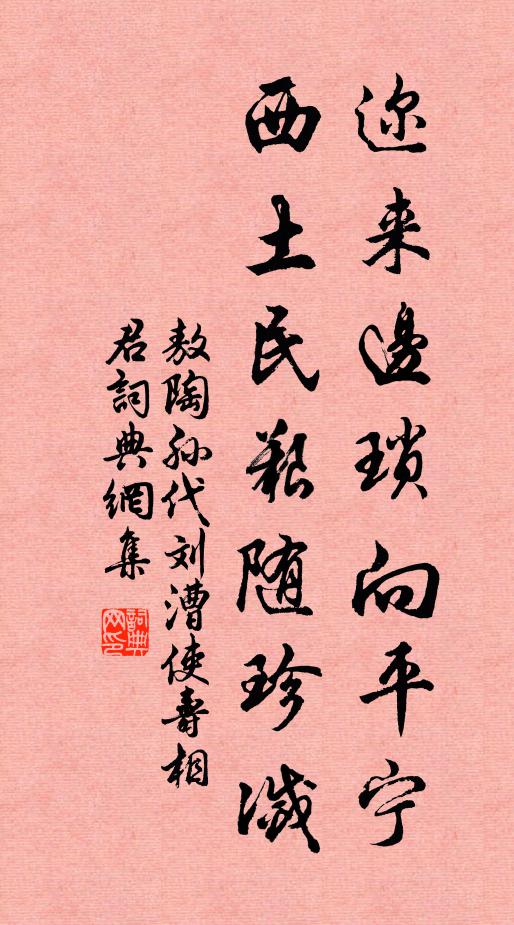 迩来边琐向平宁
西土民艰随殄灭
敖陶孙代刘漕使寿相
君词典网集
词典
网印